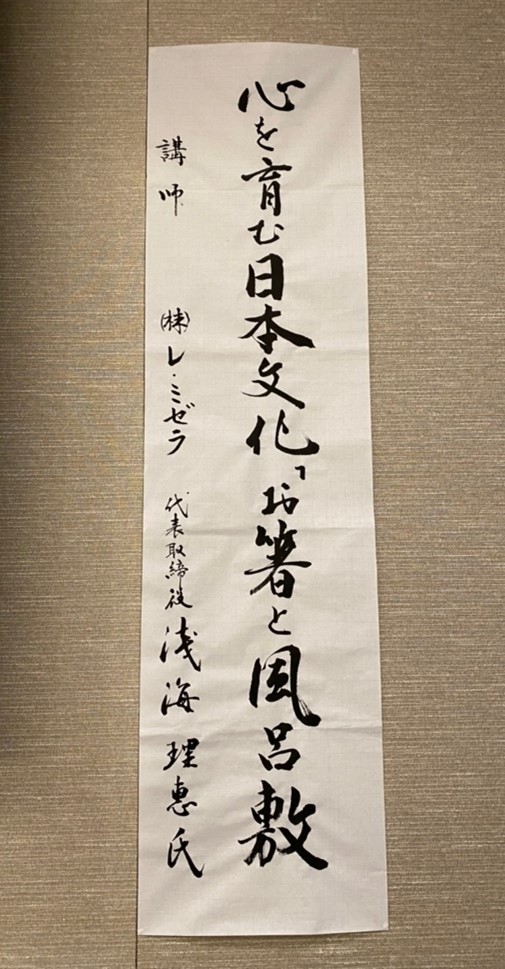 心を育む日本文化「お箸と風呂敷
講師 ㈱レ・ミゼラ 代表取締役 浅海理恵氏